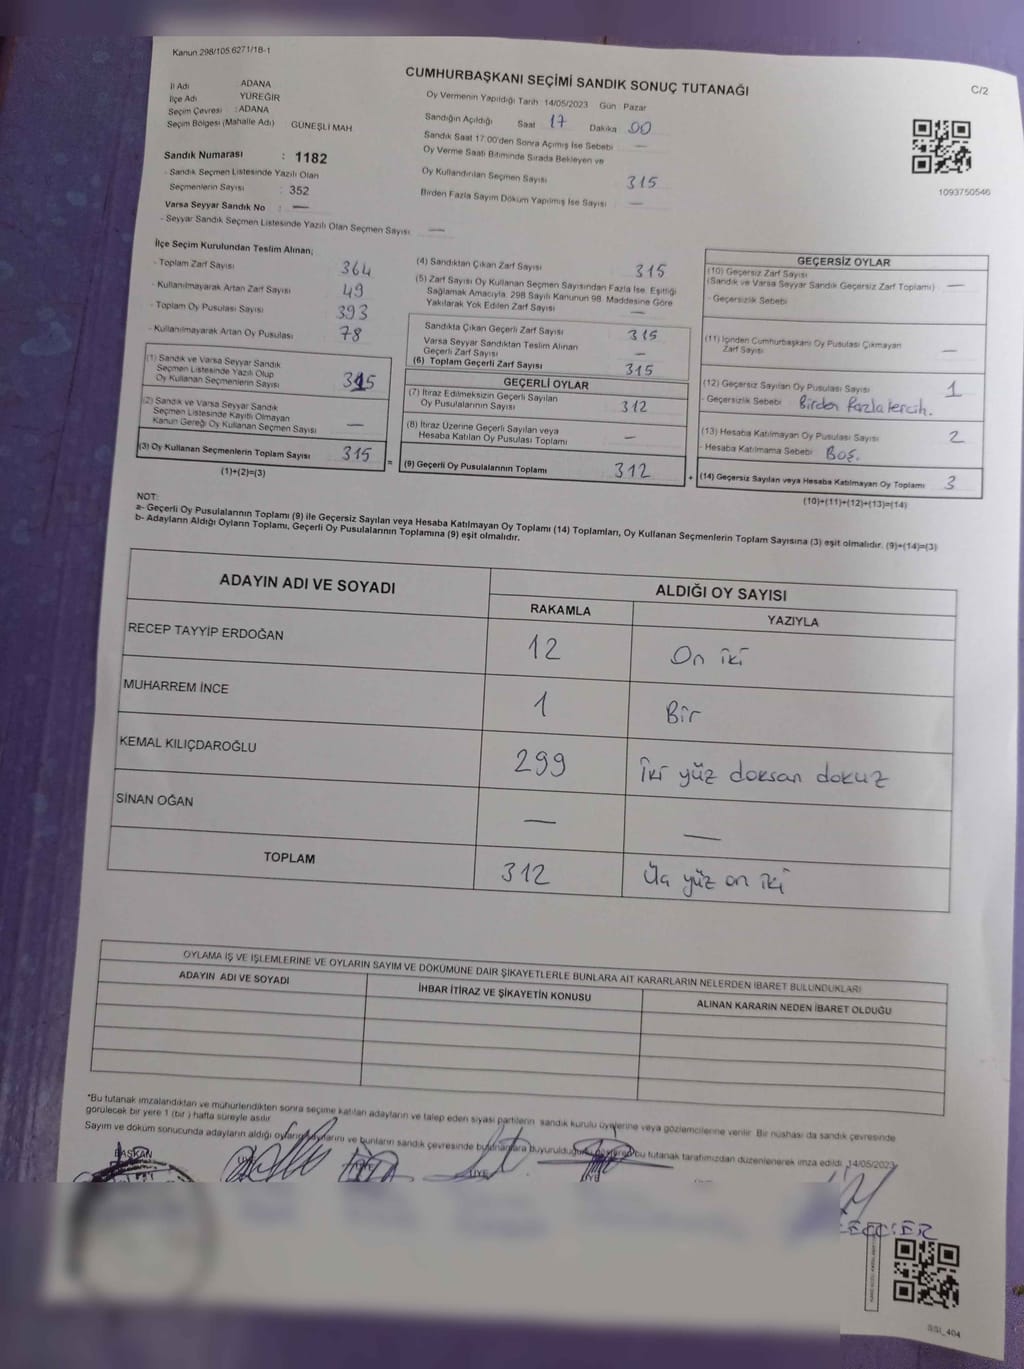 Kanun 298/105.6271/18-1
CUMHURBAŞKANI SEÇİMİ SANDIK SONUÇ TUTANAĞI
C/2
İl Adı ADANA
İlçe Adı YÜREĞİR
Seçim Çevresi : ADANA
Seçim Bölgesi (Mahalle Adı) GÜNEŞLİ MAH
Oy Vermenin Yapıldığı Tarih 14/05/2023 Gün Pazar
Sandığın Açıldığı Saat 17 Dakika 00
Sandık Saat 17:00'den Sonra Açılmış İse Sebebi —
Oy Verme Saati Bitiminde Sırada Bekleyen ve
Oy Kullandırılan Seçmen Sayısı 315
Birden Fazla Sayım Döküm Yapılmış İse Sayısı —
1093750546
Sandık Numarası : 1182
- Sandık Seçmen Listesinde Yazılı Olan
Seçmenlerin Sayısı : 352
Varsa Seyyar Sandık No : —
- Seyyar Sandık Seçmen Listesinde Yazılı Olan Seçmen Sayısı —
İlçe Seçim Kurulundan Teslim Alınan;
- Toplam Zarf Sayısı 364
- Kullanılmayarak Artan Zarf Sayısı 49
- Toplam Oy Pusulası Sayısı 393
- Kullanılmayarak Artan Oy Pusulası 78
(1) Sandık ve Varsa Seyyar Sandık
Seçmen Listesinde Yazılı Olup
Oy Kullanan Seçmenlerin Sayısı 315
(2) Sandık ve Varsa Seyyar Sandık
Seçmen Listesinde Kayıtlı Olmayan
Kanun Gereği Oy Kullanan Seçmen Sayısı —
(3) Oy Kullanan Seçmenlerin Toplam Sayısı 315
(1)+(2)=(3)
(4) Sandıktan Çıkan Zarf Sayısı 315
(5) Zarf Sayısı Oy Kullanan Seçmen Sayısından Fazla İse, Eşitliği
Sağlamak Amacıyla, 298 Sayılı Kanunun 98. Maddesine Göre
Yakılarak Yok Edilen Zarf Sayısı —
Sandıkta Çıkan Geçerli Zarf Sayısı 315
Varsa Seyyar Sandıktan Teslim Alınan
Geçerli Zarf Sayısı —
(6) Toplam Geçerli Zarf Sayısı 315
GEÇERLİ OYLAR
(7) İtiraz Edilmeksizin Geçerli Sayılan
Oy Pusulalarının Sayısı 312
(8) İtiraz Üzerine Geçerli Sayılan veya
Hesaba Katılan Oy Pusulası Toplamı —
= (9) Geçerli Oy Pusulalarının Toplamı 312
GEÇERSİZ OYLAR
(10) Geçersiz Zarf Sayısı
(Sandık ve Varsa Seyyar Sandık Geçersiz Zarf Toplamı) —
- Geçersizlik Sebebi
(11) İçinden Cumhurbaşkanı Oy Pusulası Çıkmayan
Zarf Sayısı —
(12) Geçersiz Sayılan Oy Pusulası Sayısı 1
- Geçersizlik Sebebi Birden fazla tercih.
(13) Hesaba Katılmayan Oy Pusulası Sayısı 2
- Hesaba Katılmama Sebebi Boş.
+ (14) Geçersiz Sayılan veya Hesaba Katılmayan Oy Toplamı 3
(10)+(11)+(12)+(13)=(14)
NOT:
a- Geçerli Oy Pusulalarının Toplamı (9) ile Geçersiz Sayılan veya Hesaba Katılmayan Oy Toplamı (14) Toplamları, Oy Kullanan Seçmenlerin Toplam Sayısına (3) eşit olmalıdır. (9)+(14)=(3)
b- Adayların Aldığı Oyların Toplamı, Geçerli Oy Pusulalarının Toplamına (9) eşit olmalıdır.
ADAYIN ADI VE SOYADI ALDIĞI OY SAYISI
RAKAMLA YAZIYLA
RECEP TAYYİP ERDOĞAN 12 On iki
MUHARREM İNCE 1 Bir
KEMAL KILIÇDAROĞLU 299 İki yüz doksan dokuz
SİNAN OĞAN — —
TOPLAM 312 Üç yüz on iki
OYLAMA İŞ VE İŞLEMLERİNE VE OYLARIN SAYIM VE DÖKÜMÜNE DAİR ŞİKAYETLERLE BUNLARA AİT KARARLARIN NELERDEN İBARET BULUNDUKLARI
ADAYIN ADI VE SOYADI İHBAR İTİRAZ VE ŞİKAYETİN KONUSU ALINAN KARARIN NEDEN İBARET OLDUĞU
*Bu tutanak imzalandıktan ve mühürlendikten sonra seçime katılan adayların ve talep eden siyasi partilerin sandık kurulu üyelerine veya gözlemcilerine verilir. Bir nüshası da sandık çevresinde
görülecek bir yere 1 (bir) hafta süreyle asılır.
Sayım ve döküm sonucunda adayların aldığı ve bunların sandık çevresinde bu tutanak tarafımızdan düzenlenerek imza edildi. 14/05/2023
BAŞKAN ÜYE ÜYE ÜYE
SSI_404